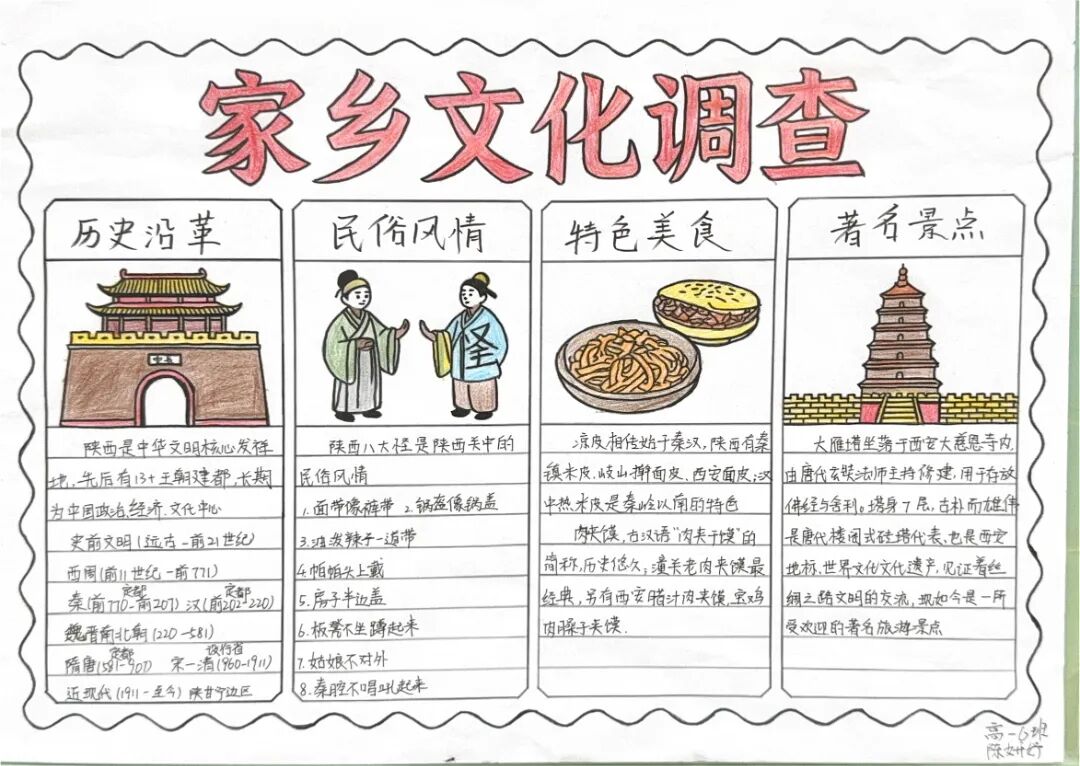 家乡文化调查
历史沿革
陕西是中华文明核心发祥
地，先后有13+王朝建都，长期
为中国政治、经济、文化中心
史前文明（远古-前21世纪）
西周（前11世纪-前771）
定都 定都
秦（前770-前207） 汉（前202-220）
魏晋南北朝（220-581）
定都 设行省
隋唐（581-907） 宋-清（960-1911）
近现代（1911-至今）陕甘宁边区
民俗风情
陕西八大怪是陕西关中的
民俗风情
1.面带像裤带 2.锅盔像锅盖
3.油泼辣子一道带
4.帕帕头上戴
5.房子半边盖
6.板凳不坐蹲起来
7.姑娘不对外
8.秦腔不唱吼起来
特色美食
凉皮相传始于秦汉，陕西有秦
镇米皮、岐山擀面皮、西安面皮；汉
中热米皮是秦岭以南的特色
肉夹馍，古汉语“肉夹于馍”的
简称，历史悠久；潼关老肉夹馍最
经典，另有西安腊汁肉夹馍、宝鸡
肉臊子夹馍.
著名景点
大雁塔坐落于西安大慈恩寺内，
由唐代玄奘法师主持修建，用于存放
佛经与舍利。塔身7层，古朴而雄伟
是唐代楼阁式砖塔代表、也是西安
地标、世界文化文化遗产，见证着丝
绸之路文明的交流，现如今是一所
受欢迎的著名旅游景点
高一6班